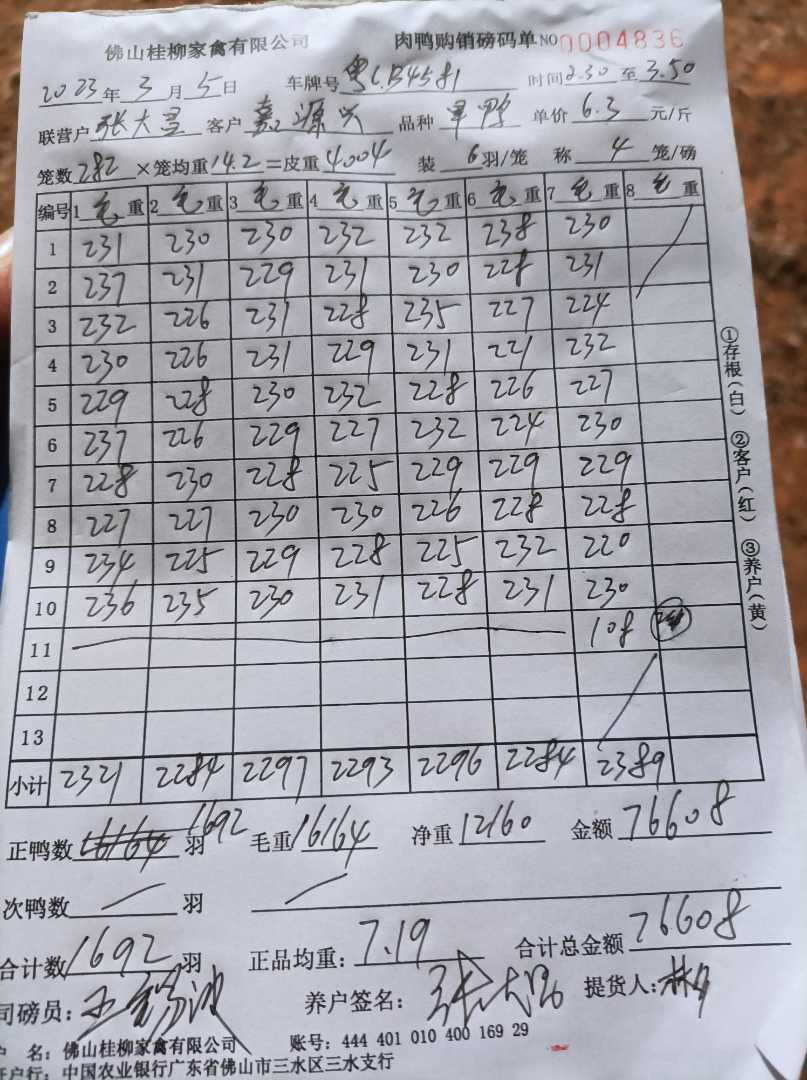 佛山桂柳家禽有限公司 肉鸭购销磅码单 NO 0004836
2023年3月5日 车牌号粤C.B4581 时间2.30至3.50
联营户张大 客户嘉源兴 品种 单价6.3元/斤
笼数282×笼均重14.2=皮重4004 装6羽/笼 称4笼/磅
编号 1毛重 2毛重 3毛重 4毛重 5毛重 6毛重 7毛重 8毛重
1 231 230 230 232 232 238 230
2 237 231 229 231 230 228 231
3 232 226 231 228 235 227 224
4 230 226 231 229 231 221 232
5 229 228 230 232 228 226 227
6 237 226 229 227 232 224 230
7 228 230 228 225 229 229 229
8 227 227 230 230 226 228 228
9 234 225 229 228 225 232 220
10 236 235 230 231 228 231 230
11 108
12
13
小计 2321 2284 2297 2293 2296 2284 2389
正鸭数 1692羽 毛重16164 净重12160 金额76608
次鸭数 羽
合计数1692羽 正品均重：7.19 合计总金额76608
司磅员： 养户签名： 提货人：
户 名：佛山桂柳家禽有限公司 账号：444 401 010 400 169 29
开户行：中国农业银行广东省佛山市三水区三水支行
①存根（白） ②客户（红） ③养户（黄）